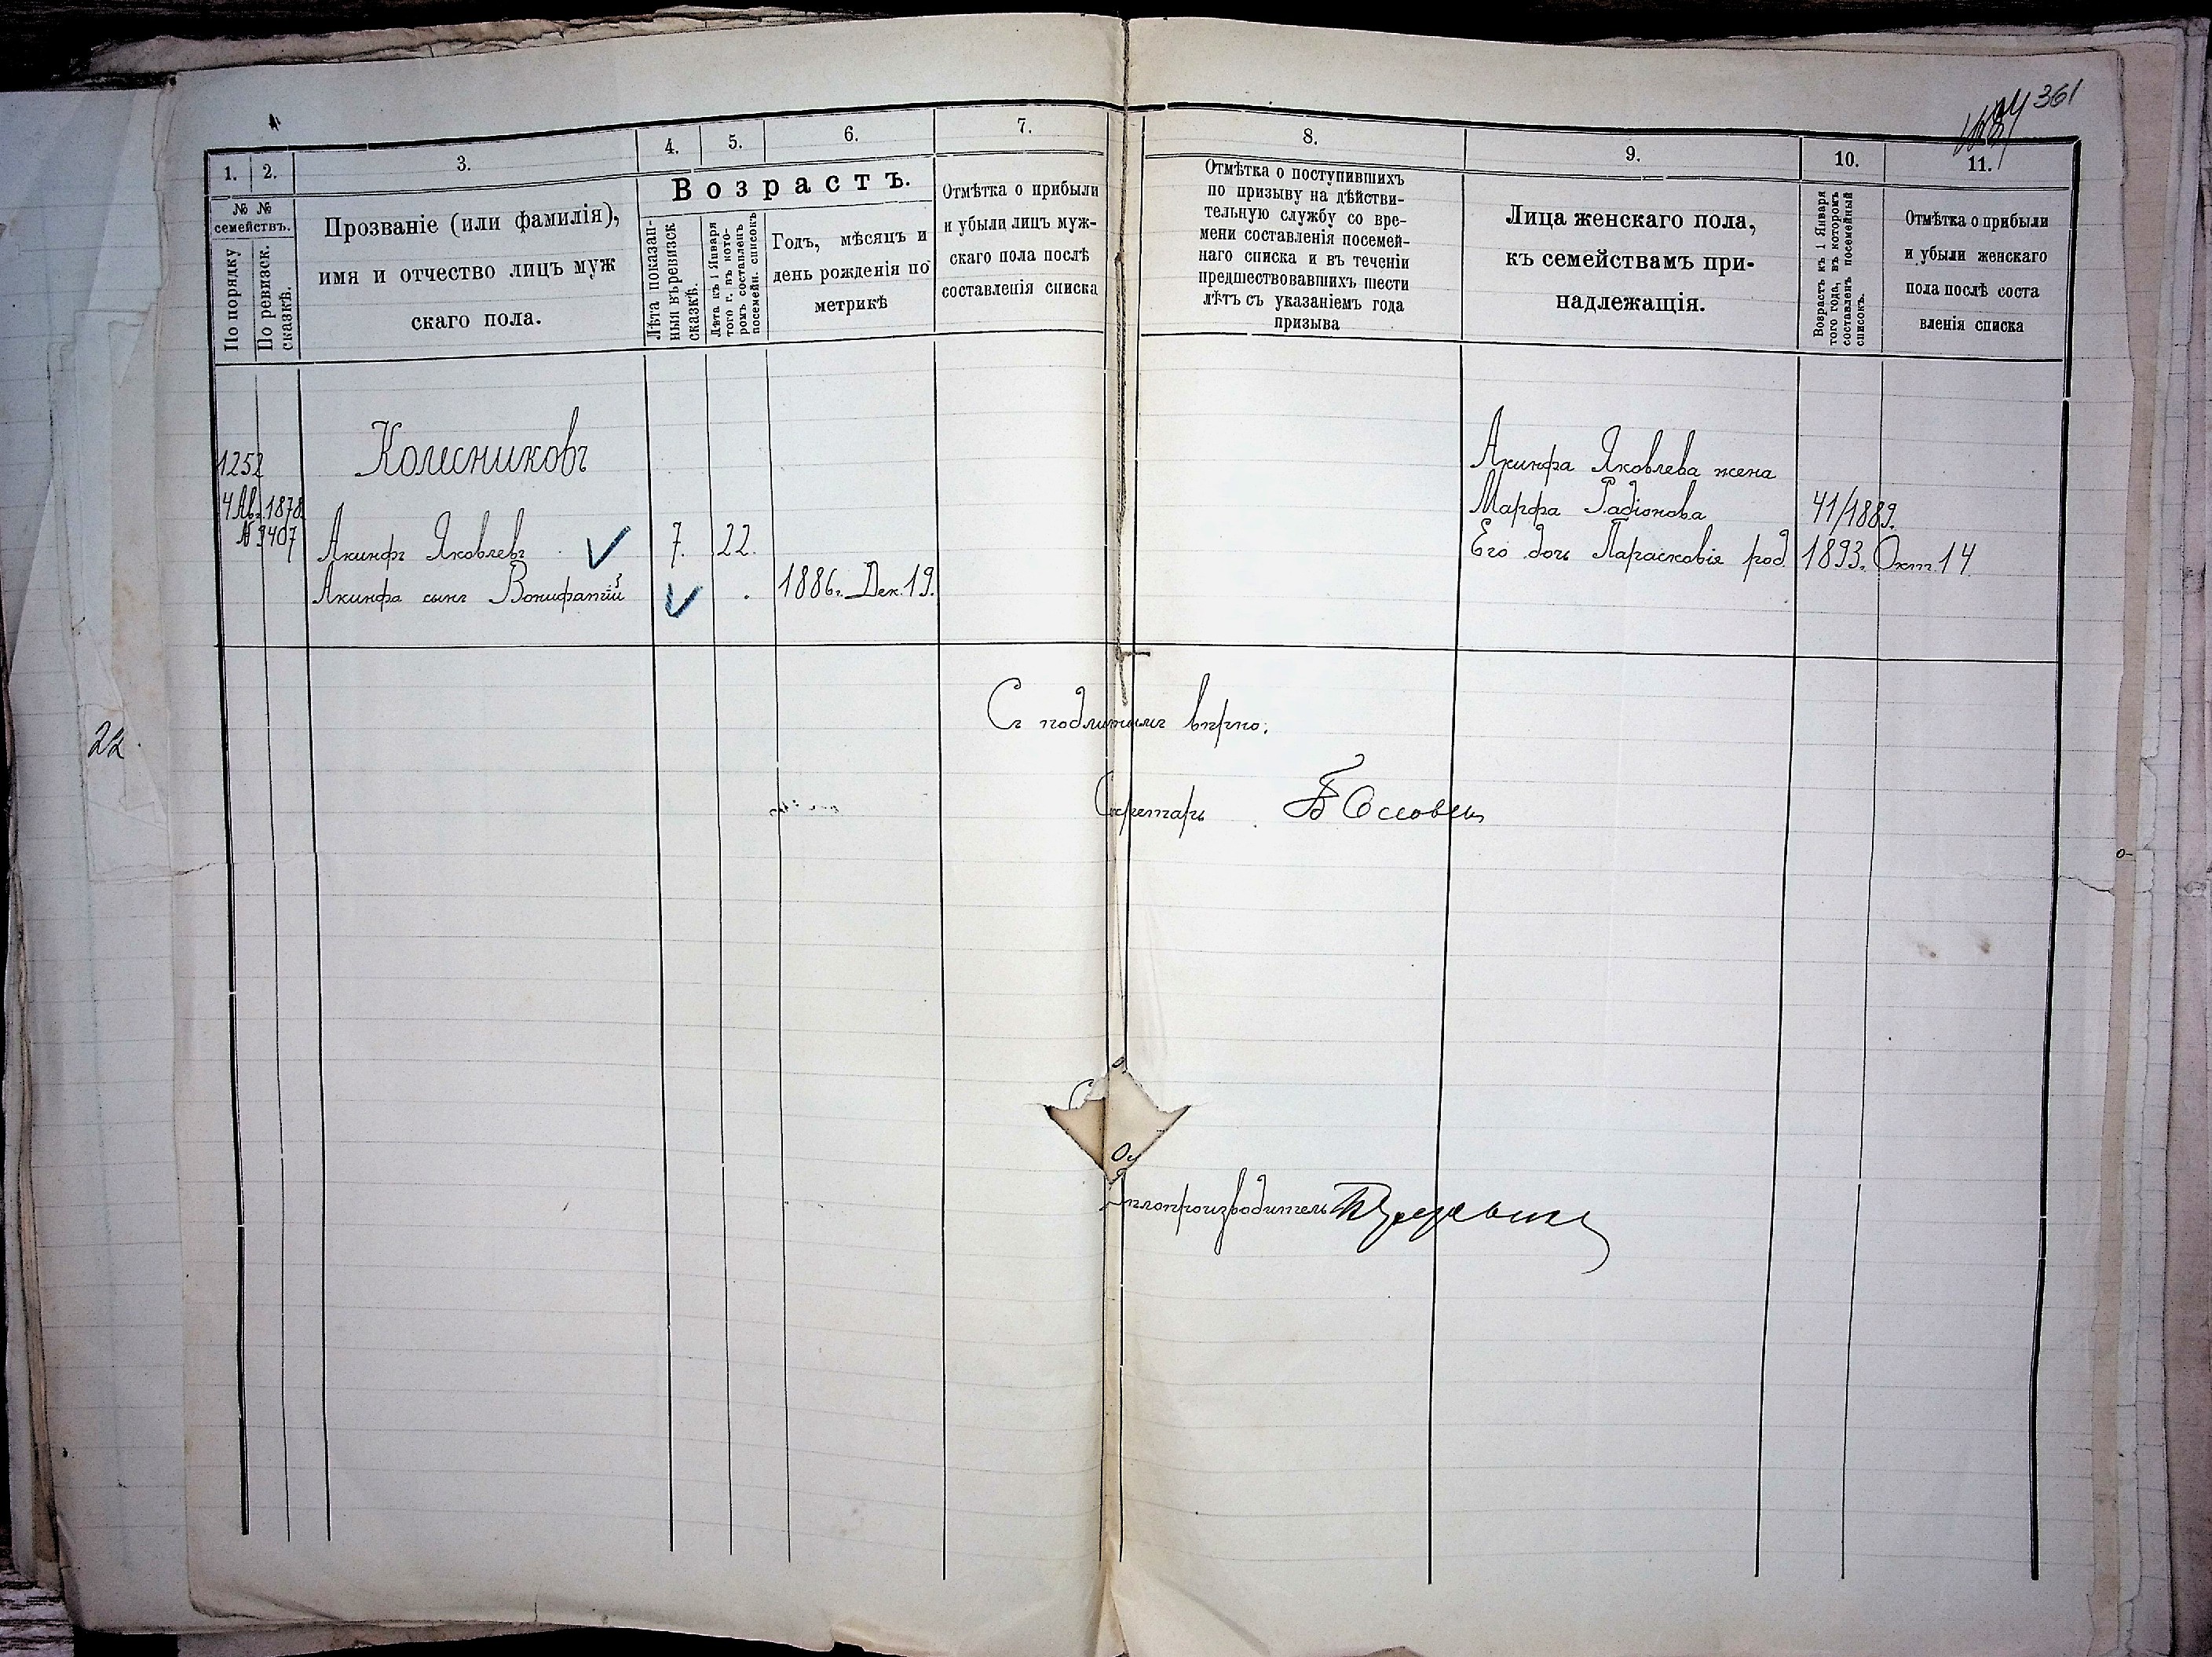 361
1. 2. 3. 4. 5. 6. 7. 8. 9. 10. 11.
№ №
семействъ.
По порядку
По ревизск.
сказкѣ.
Прозваніе (или фамилія),
имя и отчество лицъ муж
скаго пола.
Возрастъ.
Лѣта показан-
ныя въ ревизск
сказкѣ.
Лѣта къ 1 Января
того г. въ кото-
ромъ составленъ
посемейн. списокъ
Годъ, мѣсяцъ и
день рожденія по
метрикѣ
Отмѣтка о прибыли
и убыли лицъ муж-
скаго пола послѣ
составленія списка
Отмѣтка о поступившихъ
по призыву на дѣйстви-
тельную службу со вре-
мени составленія посемей-
наго списка и въ теченіи
предшествовавшихъ шести
лѣтъ съ указаніемъ года
призыва
Лица женскаго пола,
къ семействамъ при-
надлежащія.
Возрастъ къ 1 Января
того года, въ которомъ
составленъ посемейный
списокъ.
Отмѣтка о прибыли
и убыли женскаго
пола послѣ соста
вленія списка
1252 Колесниковъ
4 Ав. 1878
№ 3407
Акинфъ Яковлевъ 7. 22.
Акинфа сынъ Вонифатій 1886г. Дек. 19.
Акинфа Яковлева жена
Марфа Радіонова 41/1889.
Его дочь Парасковія род. 1893. Окт. 14
Съ подлиннымъ вѣрно:
Секретарь
22.